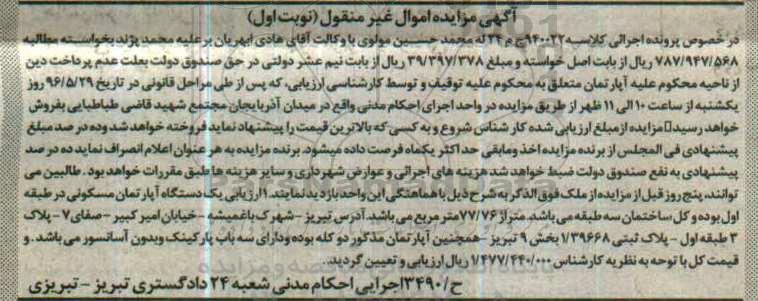 آگهی مزایده اموال غیر منقول (نوبت اول)
در خصوص پرونده اجرائی کلاسه ۹۴۰۰۲۲ج م ۲۴ له محمد حسین مولوی با وکالت آقای هادی ابهریان بر علیه محمد پژند بخواسته مطالبه
۷۸۷/۹۴۷/۵۶۸ ریال از بابت اصل خواسته و مبلغ ۳۹/۳۹۷/۳۷۸ ریال از بابت نیم عشر دولتی در حق صندوق دولت بعلت عدم پرداخت دین
از ناحیه محکوم علیه آپارتمان متعلق به محکوم علیه توقیف و توسط کارشناسی ارزیابی، که پس از طی مراحل قانونی در تاریخ ۹۶/۵/۲۹ روز
یکشنبه از ساعت ۱۰ الی ۱۱ ظهر از طریق مزایده در واحد اجرای احکام مدنی واقع در میدان آذربایجان مجتمع شهید قاضی طباطبایی بفروش
خواهد رسید مزایده از مبلغ ارزیابی شده کارشناس شروع و به کسی که بالاترین قیمت را پیشنهاد نماید فروخته خواهد شد و ده در صد مبلغ
پیشنهادی فی المجلس از برنده مزایده اخذ و مابقی حد اکثر یکماه فرصت داده میشود. برنده مزایده به هر عنوان اعلام انصراف نماید ده در صد
پیشنهادی به نفع صندوق دولت ضبط خواهد شد هزینه های اجرائی و عوارض شهرداری و سایر هزینه ها طبق مقررات خواهد بود. طالبین می
توانند، پنج روز قبل از مزایده از ملک فوق الذکر به شرح ذیل با هماهنگی این واحد بازدید نمایند. ۱ ارزیابی یک دستگاه آپارتمان مسکونی در طبقه
اول بوده و کل ساختمان سه طبقه می باشد. متراژ ۷۷/۷۶ متر مربع می باشد. آدرس تبریز - شهرک باغمیشه - خیابان امیر کبیر - صفای ۷ - پلاک
۳ طبقه اول - پلاک ثبتی ۱/۳۹۶۶۸ بخش ۹ تبریز - همچنین آپارتمان مذکور دو کله بوده و دارای سه باب پارکینک و بدون آسانسور می باشد. و
قیمت کل با توجه به نظریه کارشناس ۱/۴۷۷/۴۴۰/۰۰۰ ریال ارزیابی و تعیین گردید..
ح/۳۴۹۰ اجرایی احکام مدنی شعبه ۲۴ دادگستری تبریز - تبریزی